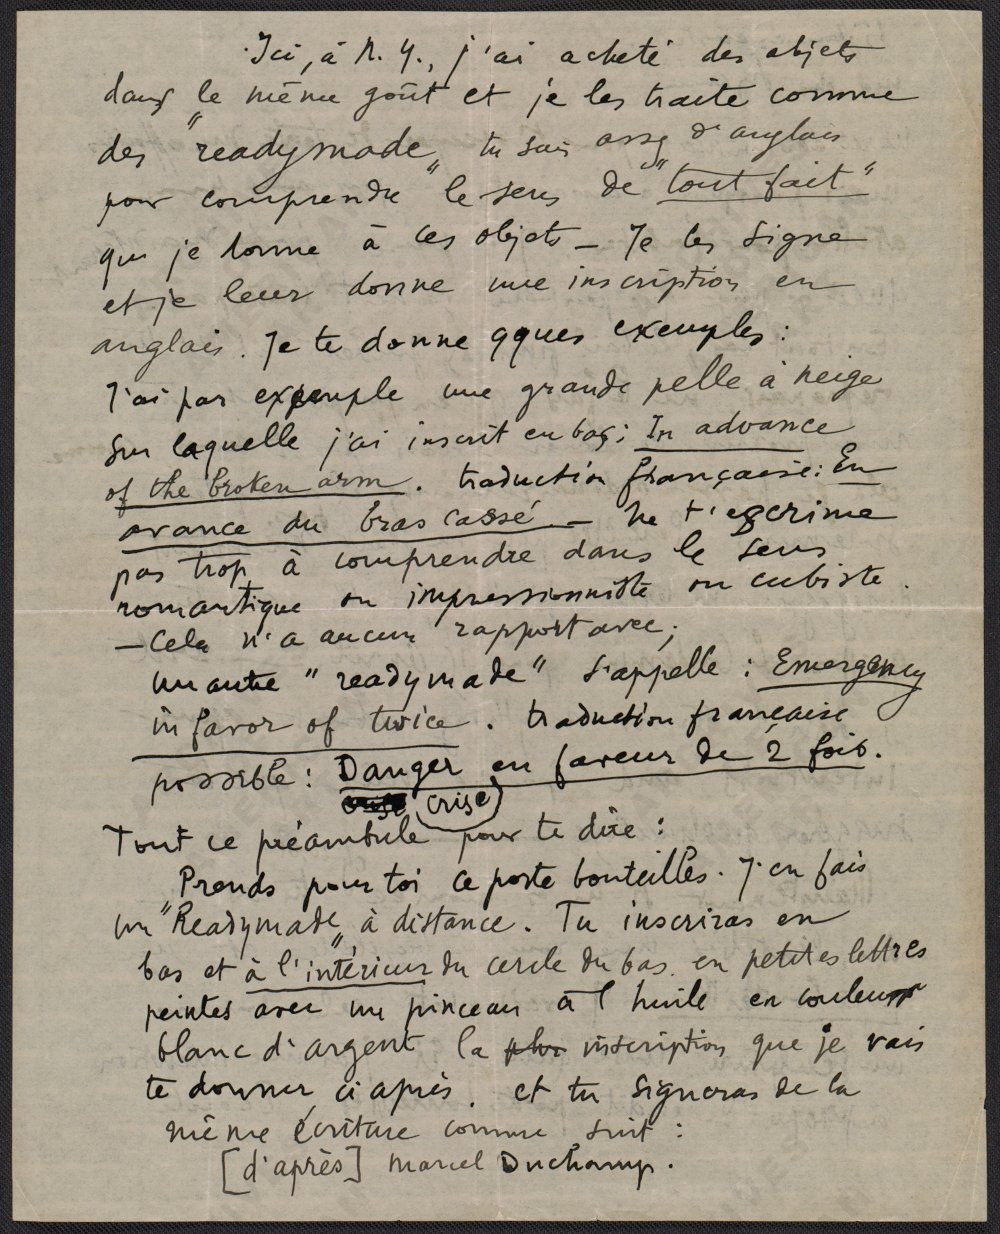 Ici, à N.Y., j'ai acheté des objets
dans le même goût et je les traite comme
des "readymade", tu sais assez d'anglais
pour comprendre le sens de "tout fait"
que je donne à ces objets — Je les signe
et je leur donne une inscription en
anglais. Je te donne qques exemples :
J'ai par exemple une grande pelle à neige
sur laquelle j'ai inscrit en bas: In advance
of the broken arm. traduction française: En
avance du bras cassé — ne t'escrime
pas trop à comprendre dans le sens
romantique ou impressionniste ou cubiste.
— Cela n'a aucun rapport avec;
un autre "readymade" s'appelle : Emergency
in favor of twice. traduction française
possible : Danger en faveur de 2 fois.
(crise)
Tout ce préambule pour te dire :
Prends pour toi ce porte bouteilles. J'en fais
un "Readymade" à distance. Tu inscriras en
bas et à l'intérieur du cercle du bas. en petites lettres
peintes avec un pinceau à l'huile en couleur
blanc d'argent la inscription que je vais
te donner ci après. et tu signeras de la
même écriture comme suit :
[d'après] Marcel Duchamp.